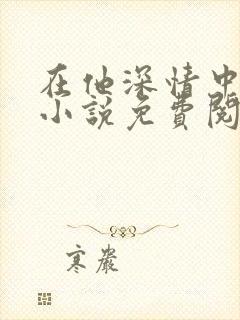 在他深情中
小說免費閱
寒嚴